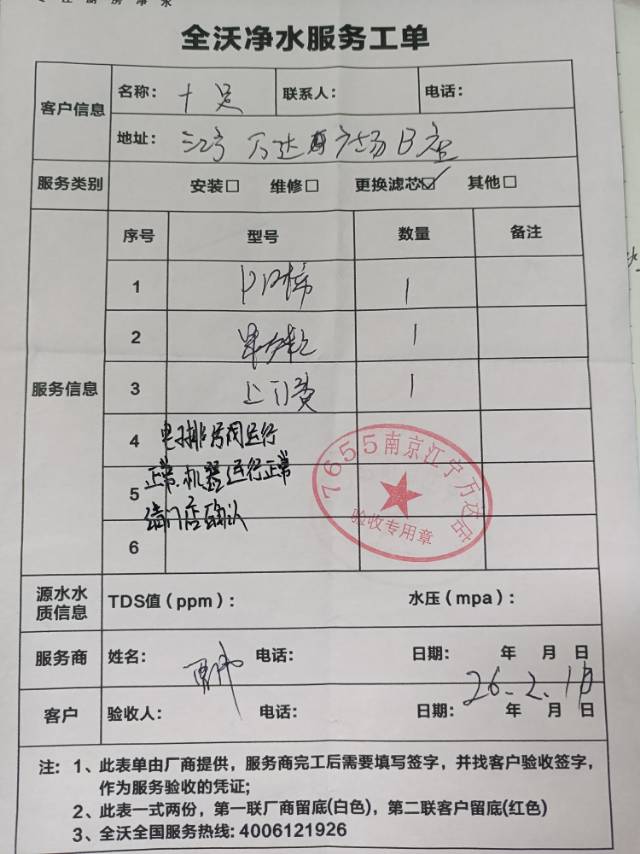 全沃净水服务工单
客户信息
名称： 联系人： 电话：
地址： 江宁万达广场B座
服务类别 安装□ 维修□ 更换滤芯☑ 其他□
服务信息
序号 型号 数量 备注
1 PP棉 1
2 1
3 上门费 1
4 电子排污阀运行
正常.机器运行正常
5
请门店确认
6
7655南京江宁万达店
验收专用章
源水水质信息 TDS值（ppm）： 水压（mpa）：
服务商 姓名： 电话： 日期： 年 月 日
26.2.
客户 验收人： 电话： 日期： 年 月 日
注：1、此表单由厂商提供，服务商完工后需要填写签字，并找客户验收签字，
作为服务验收的凭证;
2、此表一式两份，第一联厂商留底(白色)，第二联客户留底(红色)
3、全沃全国服务热线: 4006121926